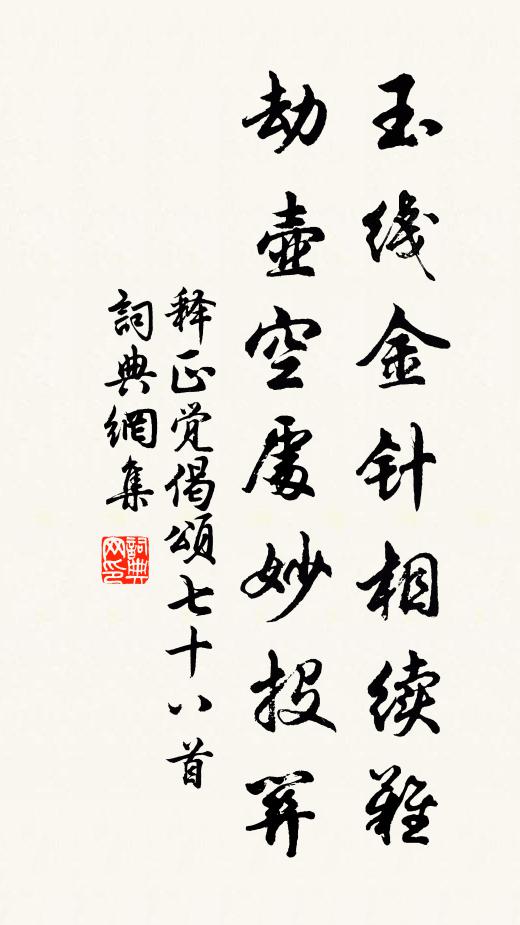 玉线金针相续难
劫壶空處妙投關
释正觉偈頌七十八首
詞典網集
詞典网印